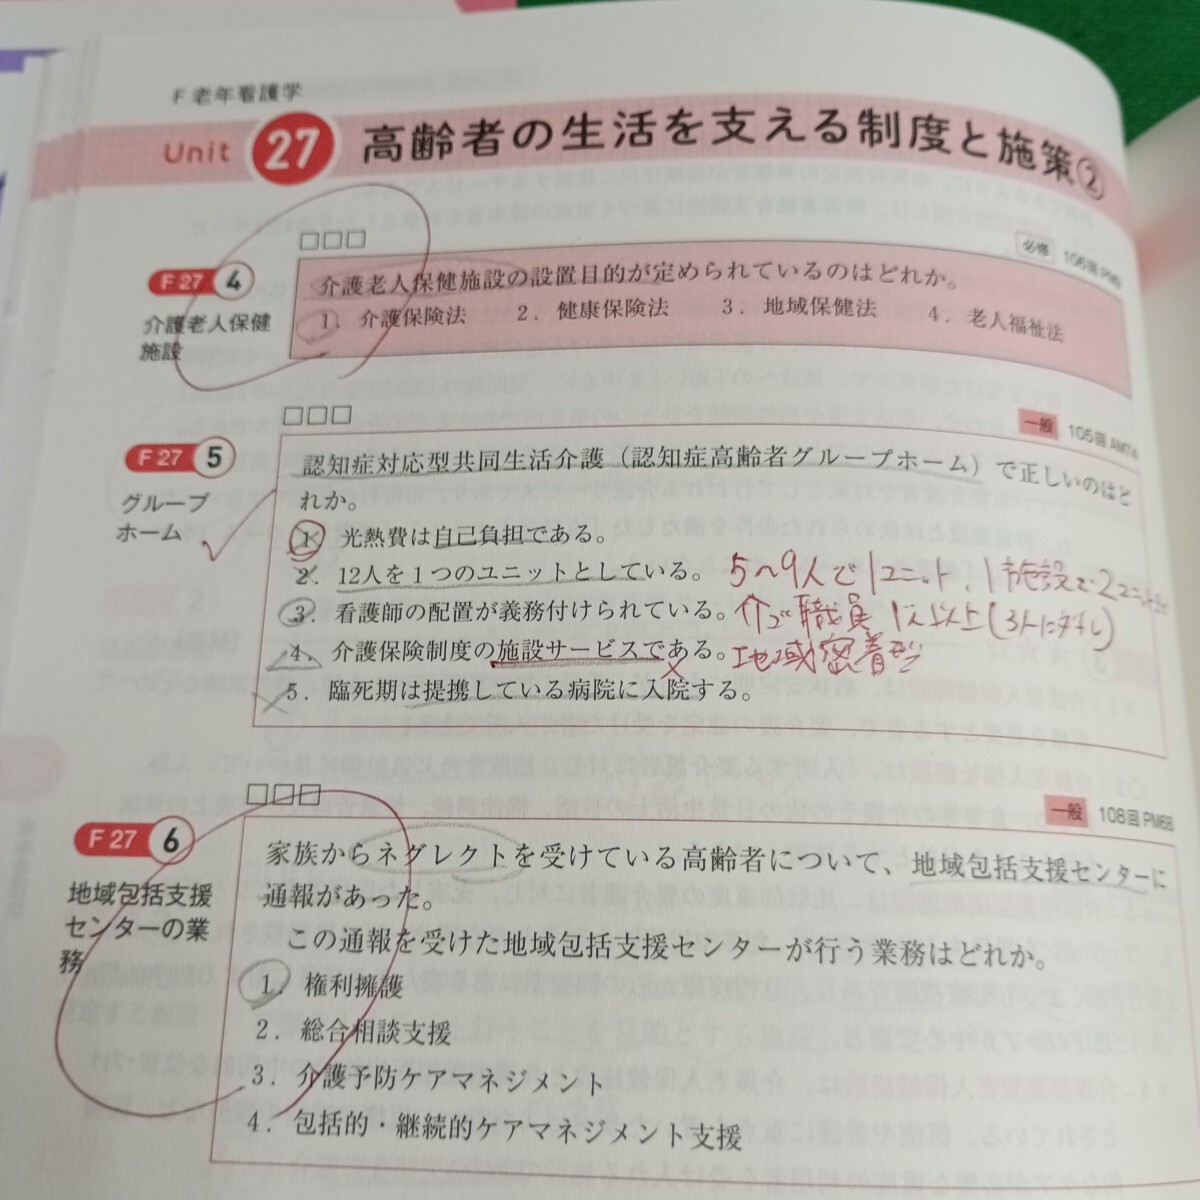 F 老年看護学
Unit 27 高齢者の生活を支える制度と施策②
□□□
必修 106回PM9
F27 4
介護老人保健
施設
介護老人保健施設の設置目的が定められているのはどれか。
1. 介護保険法 2. 健康保険法 3. 地域保健法 4. 老人福祉法
□□□
一般 105回AM74
F27 5
グループ
ホーム
認知症対応型共同生活介護（認知症高齢者グループホーム）で正しいのはど
れか。
1. 光熱費は自己負担である。
2. 12人を1つのユニットとしている。 5〜9人で1ユニット、1施設で2ユニット
3. 看護師の配置が義務付けられている。 介ゴ職員 1人以上(3人に対し)
4. 介護保険制度の施設サービスである。 地域密着型
5. 臨死期は提携している病院に入院する。
□□□
一般 108回PM68
F27 6
地域包括支援
センターの業
務
家族からネグレクトを受けている高齢者について、地域包括支援センターに
通報があった。
この通報を受けた地域包括支援センターが行う業務はどれか。
1. 権利擁護
2. 総合相談支援
3. 介護予防ケアマネジメント
4. 包括的・継続的ケアマネジメント支援